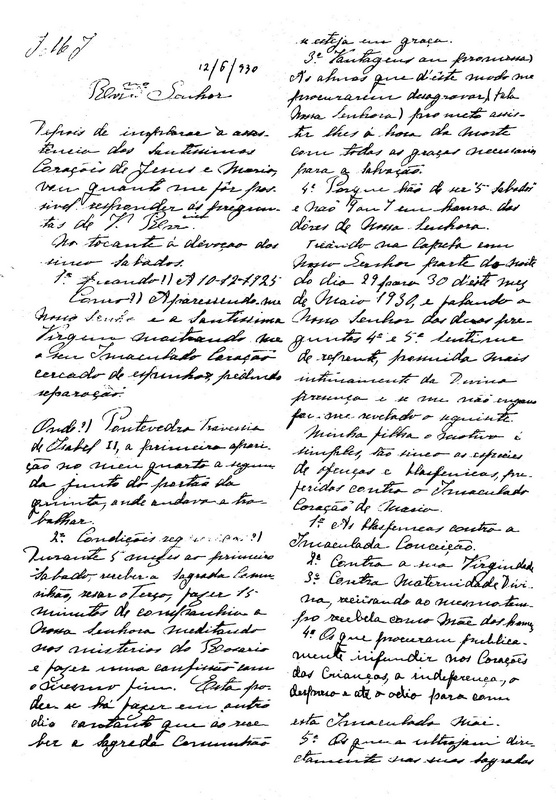 J. M. J.
12/6/930
Rev.mo Senhor
Depois de implorar a assis-
tencia dos Santissimos
Corações de Jesus e Maria,
vou quanto me fôr pos-
sivel responder ás pregun-
tas de V. Rev.cia
No tocante á devoção dos
cinco sabados.
1ª Quando?) A 10-12-1925
Como?) Aparecendo-me
Nosso Senhor e a Santissima
Virgem mostrando-me
o seu Imaculado Coração
cercado de espinhos, pedindo
reparação.
Onde?) Pontevedra Travesia
de Isabel II, a primeira apari-
ção no meu quarto a segun
da junto do portão da
quinta, onde andava a tra-
balhar.
2ª Condições
Durante 5 mezes ao primeiro
sabado, receber a Sagrada Comu-
nhão, resar o Terço, fazer 15
minutos de companhia a
Nossa Senhora meditando
nos misterios do Rosario
e fazer uma confissão com
o mesmo fim. Esta po-
de ser feita em outro
dia contanto que ao rece-
ber a Sagrada Comunhão
se esteja em graça.
3ª Vantagens ou promessa)
Ás almas que d'éste modo me
procurarem desagravar, (fala
Nossa Senhora) prometo assis-
tir-lhes á hora da morte
com todas as graças necessarias
para a salvação.
4ª Porque hão de ser 5 sabados
e não 9 ou 7 em honra das
dôres de Nossa Senhora.
Ficando na Capela com
Nosso Senhor parte da noite
do dia 29 para 30 d'éste mez
de Maio 1930, e falando a
Nosso Senhor das duas pre-
guntas 4ª e 5ª senti-me
de repente, possuida mais
intimamente da Divina
presença e se me não engano
foi-me revelado o seguinte.
Minha filha o motivo é
simples, são cinco as especies
de ofenças e blasfemeas, pro-
feridas contra o Imaculado
Coração de Maria.
1ª As blasfemeas contra a
Imaculada Conceição.
2ª Contra a sua Virgindade
3ª Contra Maternidade Divi-
na, recusando ao mesmo tem-
po recebela como Mãe dos homens
4ª Os que procuram publica-
mente infundir nos Corações
das Crianças, a indeferença, o
despreso e até o odio para com
esta Imaculada Mãe.
5ª Os que a ultrajam dire-
ctamente nas suas sagradas